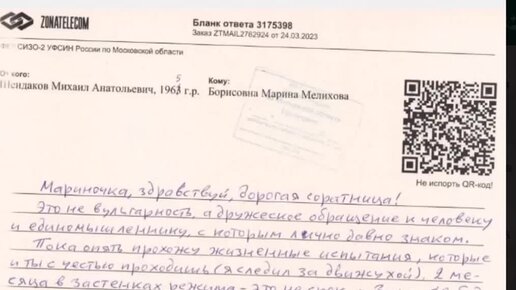 ZONATELECOM
Бланк ответа 3175398
Заказ ZTMAIL2762924 от 24.03.2023
СИЗО-2 УФСИН России по Московской области
От кого:
Шендаков Михаил Анатольевич, 1963 г.р.
5
Кому:
Борисовна Марина Мелихова
Не испорть QR-код!
Мариночка, здравствуй, дорогая соратница!
Это не вульгарность, а дружеское обращение к человеку
и единомышленнику, с которым лично давно знаком.
Пока опять прохожу жизненные испытания, которые
и ты с честью проходишь (я следил за движухой). 2 ме-
сяца в застенках режима - это не